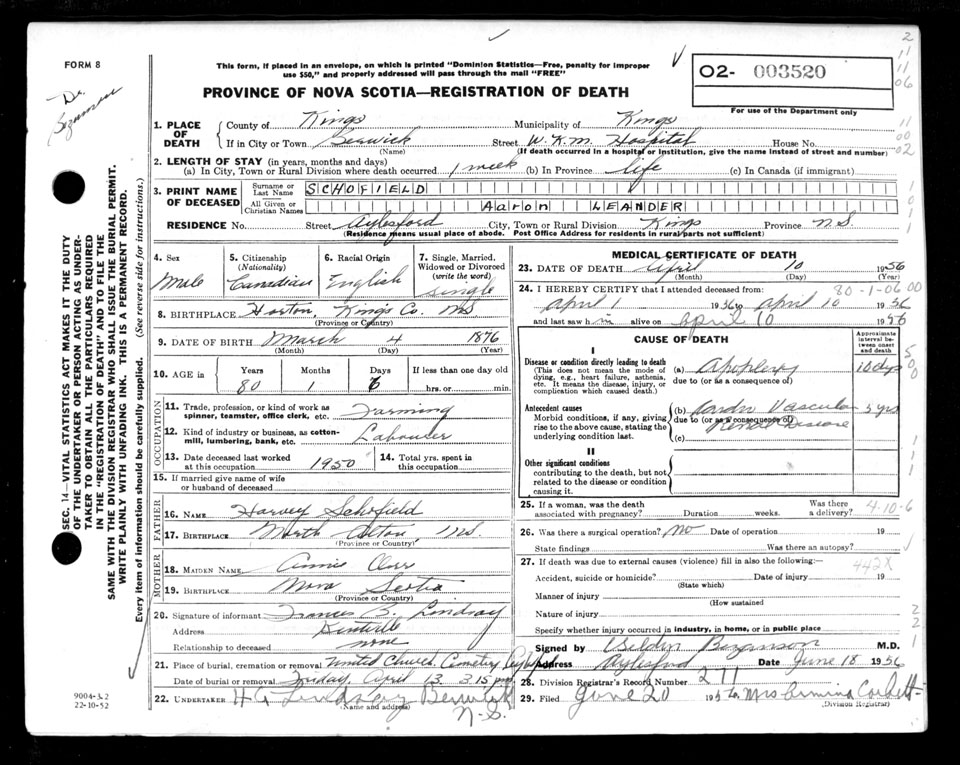 FORM 8
This form, if placed in an envelope, on which is printed "Dominion Statistics—Free, penalty for improper
use $50," and properly addressed will pass through the mail "FREE"
PROVINCE OF NOVA SCOTIA—REGISTRATION OF DEATH
O2- 003520
For use of the Department only
Dr.
1. PLACE OF DEATH
County of Kings Municipality of Kings
If in City or Town Berwick Street W.K.M. Hospital House No.
(Name) (If death occurred in a hospital or institution, give the name instead of street and number)
2. LENGTH OF STAY (in years, months and days)
(a) In City, Town or Rural Division where death occurred 1 week (b) In Province life (c) In Canada (if immigrant)
3. PRINT NAME OF DECEASED
Surname or Last Name SCHOFIELD
All Given or Christian Names Aaron LEANDER
RESIDENCE No. Street Aylesford City, Town or Rural Division Kings Province N.S.
(Residence means usual place of abode. Post Office Address for residents in rural parts not sufficient)
4. Sex Male
5. Citizenship (Nationality) Canadian
6. Racial Origin English
7. Single, Married, Widowed or Divorced (write the word) Single
8. BIRTHPLACE Horton, Kings Co. NS
(Province or Country)
9. DATE OF BIRTH March 4 1876
(Month) (Day) (Year)
10. AGE in Years 80 Months 1 Days 6 If less than one day old hrs. or min.
OCCUPATION
11. Trade, profession, or kind of work as spinner, teamster, office clerk, etc. Farming
12. Kind of industry or business, as cotton-mill, lumbering, bank, etc. Labourer
13. Date deceased last worked at this occupation 1950
14. Total yrs. spent in this occupation
15. If married give name of wife or husband of deceased
FATHER
16. NAME Harvey Schofield
17. BIRTHPLACE North Alton, NS.
(Province or Country)
MOTHER
18. MAIDEN NAME Annie
19. BIRTHPLACE Nova Scotia
(Province or Country)
20. Signature of informant Frances B. Lindsay
Address Kentville
Relationship to deceased none
21. Place of burial, cremation or removal United Church Cemetery
Date of burial or removal Friday, April 13 3.15 pm
22. UNDERTAKER H G Lindsay Berwick
(Name and address)
N.S.
MEDICAL CERTIFICATE OF DEATH
23. DATE OF DEATH April 10 1956
(Month) (Day) (Year)
24. I HEREBY CERTIFY that I attended deceased from: 80-1-06 00
April 1 1956 to April 10 1956
and last saw him alive on April 10 1956
CAUSE OF DEATH
Approximate interval between onset and death
I
Disease or condition directly leading to death
(This does not mean the mode of dying, e.g., heart failure, asthenia, etc. It means the disease, injury, or complication which caused death.)
(a) Apoplexy 10 dys
due to (or as a consequence of)
Antecedent causes
Morbid conditions, if any, giving rise to the above cause, stating the underlying condition last.
(b) Cardio Vascular 5 yrs
due to (or as a consequence of)
Renal Disease
(c)
II
Other significant conditions
contributing to the death, but not related to the disease or condition causing it.
25. If a woman, was the death associated with pregnancy? Duration weeks. Was there a delivery?
4-10-6
26. Was there a surgical operation? No Date of operation 19
State findings Was there an autopsy?
27. If death was due to external causes (violence) fill in also the following:—
442X
Accident, suicide or homicide? Date of injury 19
(State which)
Manner of injury
(How sustained
Nature of injury
Specify whether injury occurred in industry, in home, or in public place
Signed by M.D.
Address Aylesford Date June 18 1956
28. Division Registrar's Record Number 277
29. Filed June 20 1956 Mrs Corbett
(Division Registrar)
SEC. 14—VITAL STATISTICS ACT MAKES IT THE DUTY
OF THE UNDERTAKER OR PERSON ACTING AS UNDER-
TAKER TO OBTAIN ALL THE PARTICULARS REQUIRED
IN THE "REGISTRATION OF DEATH" AND TO FILE THE
SAME WITH THE DIVISION REGISTRAR WHO SHALL ISSUE THE BURIAL PERMIT.
WRITE PLAINLY WITH UNFADING INK. THIS IS A PERMANENT RECORD.
Every item of information should be carefully supplied. (See reverse side for instructions.)
9004-3.2
22-10-52